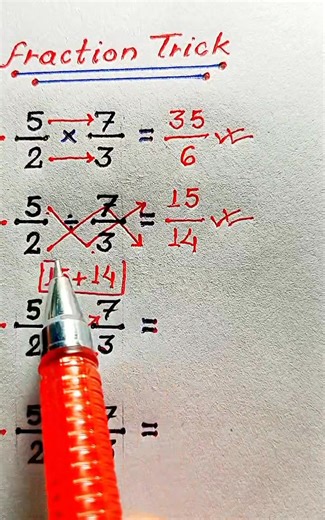 Fraction Trick
5/2 × 7/3 = 35/6
5/2 ÷ 7/3 = 15/14
15+14
5/2 7/3 =
5/2 7/3 =